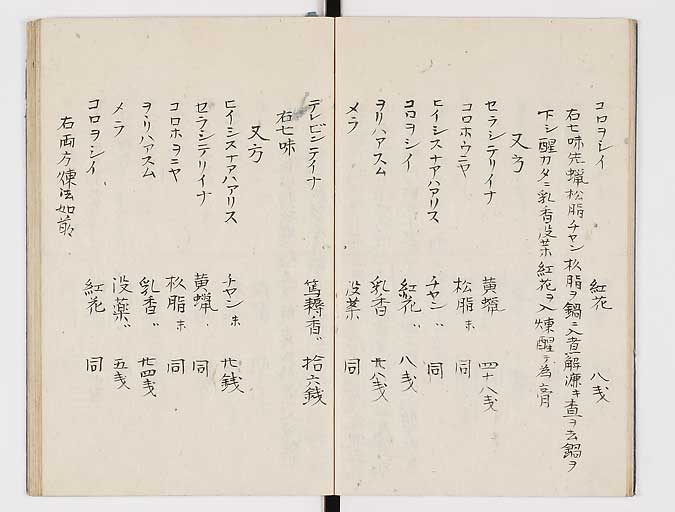 コロヲシイ 紅花 八戔
右七味先蝋松脂チヤン杉脂ヲ鍋ニ入煮解漉キ査ヲ去鍋ヲ
下シ醒カタニ乳香没薬紅花ヲ入煉醒テ為膏
又方
セラシテリイナ 黄蝋 四十八戔
コロホウニヤ 松脂ホ 同
ヒイシスナアハアリス チヤン〃 同
コロヲシイ 紅花〃 八戔
ヲリハアスム 乳香 廿八戔
メラ 没薬 同
テレビンテイナ 篤耨香〃 拾六銭
右七味
又方
ヒイシスナアハアリス チヤンホ 廿銭
セラシテリイナ 黄蝋、 同
コロホヲニヤ 松脂ホ 同
ヲリハアスム 乳香〃 廿四戔
メラ 没薬〃 五戔
コロヲシイ 紅花 同
右両方煉法如前